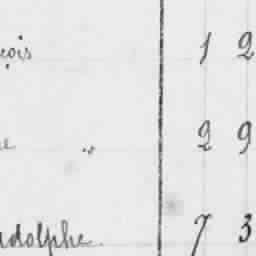 çois 1 2
e " 2 9
udolphe. 7 3